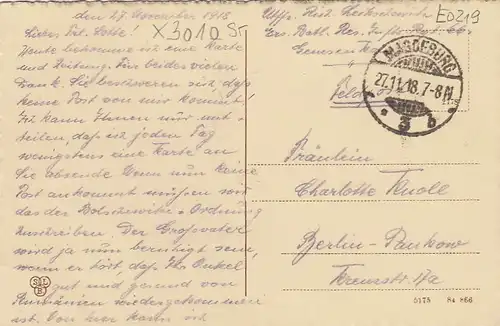 den 27. November 1918
Liebes Frl. Lotte!
Heute bekomme ich eine Karte
und Zeitung. Für beides vielen
Dank. Sie beschweren sich, daß
keine Post von mir kommt!
Ich kann Ihnen nur mit-
teilen, daß ich jeden Tag
wenigstens eine Karte an
Sie absende. Wenn nun keine
Post ankommt müssen wir
das der Bolschewiki-Ordnung
zuschreiben. Der Grossvater
wird ja nun beruhigt sein,
wenn er hört, daß Ihr Onkel
gut und gesund von
Rumänien wiedergekommen
ist. Von hier kann ich
X3010 Sr
E0219
Ers. Batl. Res. Inftr. Regt. 66
Genesenden
Feldpost
MAGDEBURG
27.11.18.7-8N
* 3 b
Fräulein
Charlotte Knoll
Berlin-Pankow
Kreuzstr. 17a
S&L
B
5175 84 866